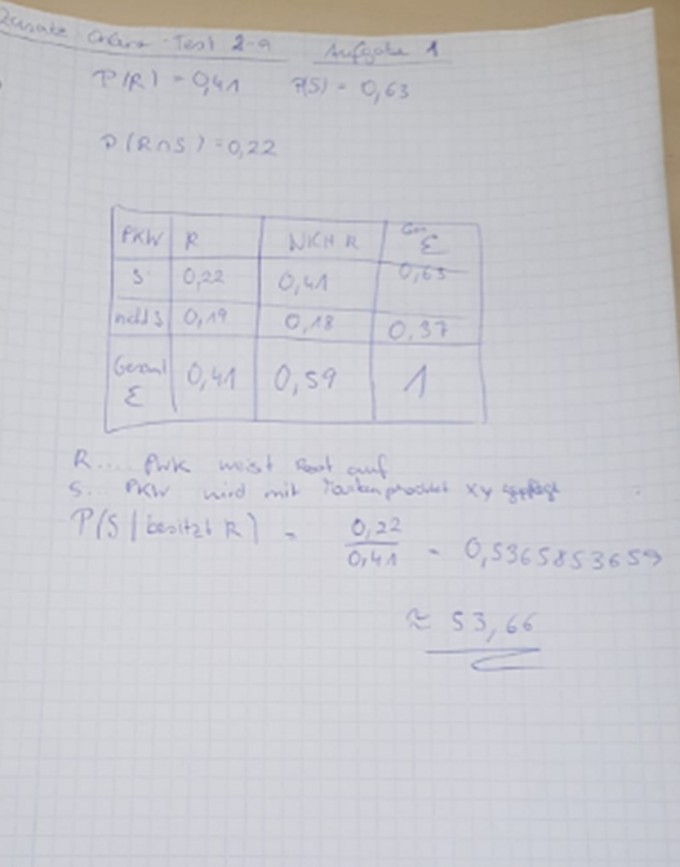 Zusatz Online-Test 2-a Aufgabe 1
P(R) = 0,41 P(S) = 0,63
P(R∩S) = 0,22
PKW R NICHT R Ges. Σ
S 0,22 0,41 0,63
nicht S 0,19 0,18 0,37
Gesamt Σ 0,41 0,59 1
R.... PWK weist Rost auf
S... PKW wird mit xy gepflegt
P(S | besitzt R) = 0,22 / 0,41 = 0,5365853659
≈ 53,66